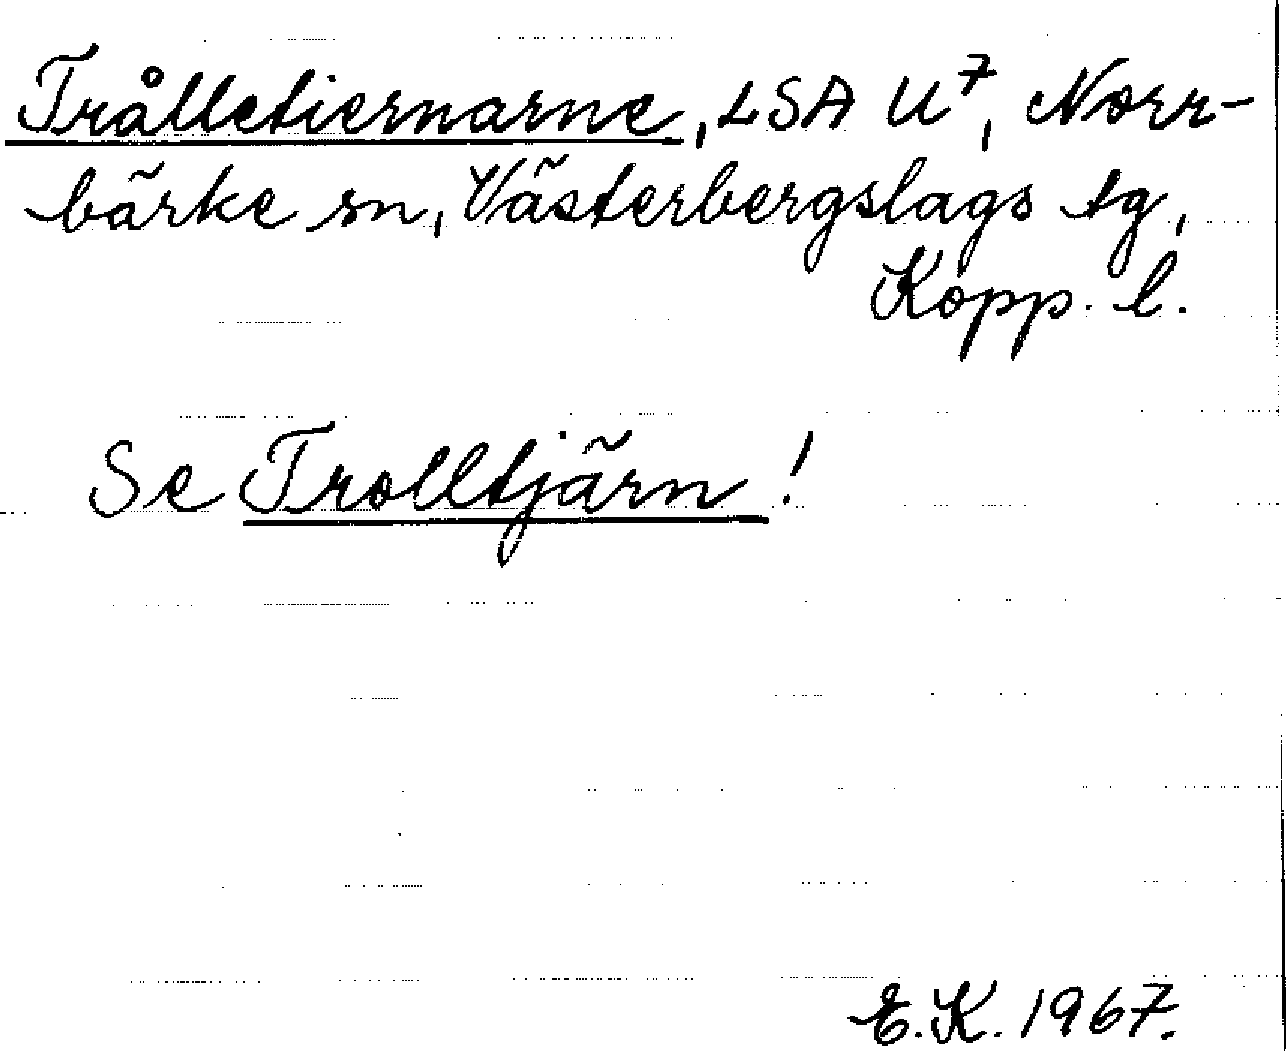 Trålletiernarne, LSA U⁷, Norr-
bärke sn, Västerbergslags tg,
Kopp. l.
Se Trolltjärn!
E.K. 1967.